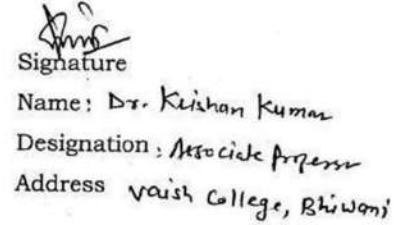 Signature
Name: Dr. Krishan Kumar
Designation: Associate Professor
Address Vaish College, Bhiwani